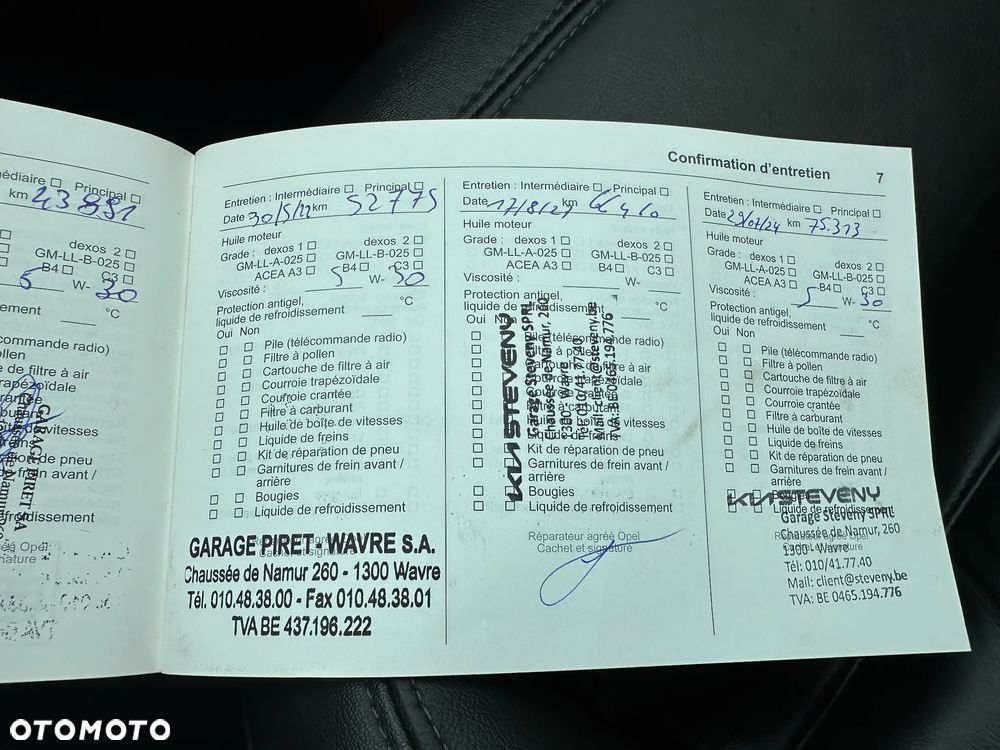 Confirmation d'entretien 7
Principal
km 43 891
B4 C3
5 W- 30
°C
Entretien : Intermédiaire Principal
Date km 52775
Huile moteur
Grade : dexos 1 dexos 2
GM-LL-A-025 GM-LL-B-025
ACEA A3 B4 C3
Viscosité : 5 W- 30
Protection antigel,
liquide de refroidissement °C
Oui Non
Pile (télécommande radio)
Filtre à pollen
Cartouche de filtre à air
Courroie trapézoïdale
Courroie crantée
Filtre à carburant
Huile de boîte de vitesses
Liquide de freins
Kit de réparation de pneu
Garnitures de frein avant /
arrière
Bougies
Liquide de refroidissement
Réparateur agréé Opel
Cachet et signature
GARAGE PIRET - WAVRE S.A.
Chaussée de Namur 260 - 1300 Wavre
Tél. 010.48.38.00 - Fax 010.48.38.01
TVA BE 437.196.222
Entretien : Intermédiaire Principal
Date km
Huile moteur
Grade : dexos 1 dexos 2
GM-LL-A-025 GM-LL-B-025
ACEA A3 B4 C3
Viscosité : W-
Protection antigel,
liquide de refroidissement °C
Oui
Pile (télécommande radio)
Kit de réparation de pneu
Garnitures de frein avant /
arrière
Bougies
Liquide de refroidissement
Réparateur agréé Opel
Cachet et signature
KIA STEVENY
Garage Steveny SPRL
Chaussée de Namur, 260
1300 - Wavre
Tél: 010/41.77.40
Mail: client@steveny.be
TVA: BE 0465.194.776
Entretien : Intermédiaire Principal
Date 29/07/24 km 75.313
Huile moteur
Grade : dexos 1 dexos 2
GM-LL-A-025 GM-LL-B-025
ACEA A3 B4 C3
Viscosité : 5 W- 30
Protection antigel,
liquide de refroidissement °C
Oui Non
Pile (télécommande radio)
Filtre à pollen
Cartouche de filtre à air
Courroie trapézoïdale
Courroie crantée
Filtre à carburant
Huile de boîte de vitesses
Liquide de freins
Kit de réparation de pneu
Garnitures de frein avant /
arrière
Bougies
Liquide de refroidissement
Réparateur agréé Opel
Cachet et signature
KIA STEVENY
Garage Steveny SPRL
Chaussée de Namur, 260
1300 - Wavre
Tél: 010/41.77.40
Mail: client@steveny.be
TVA: BE 0465.194.776
OTOMOTO